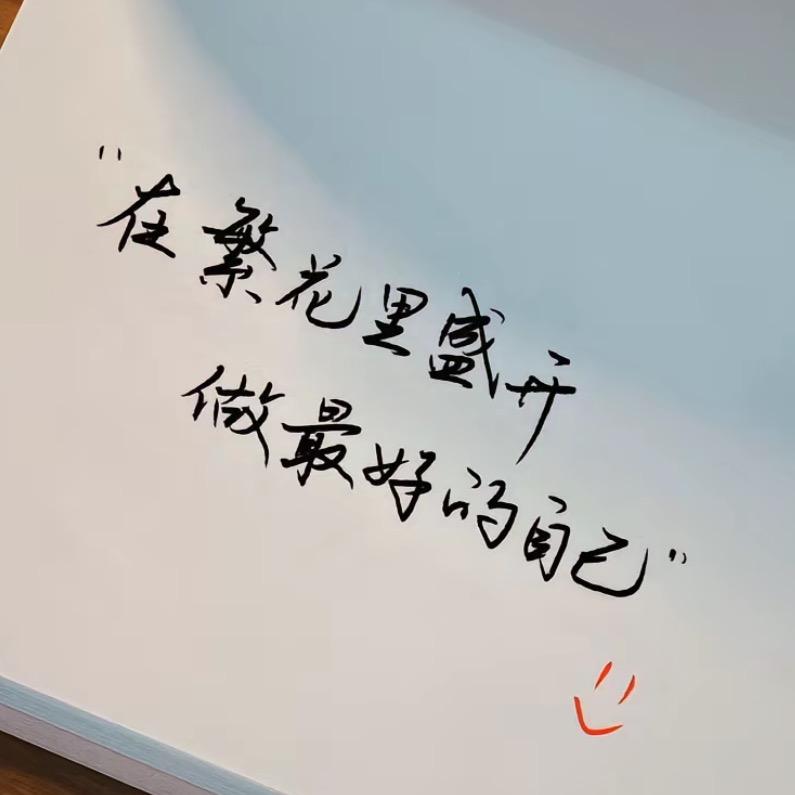 "在繁花里盛开
做最好的自己"